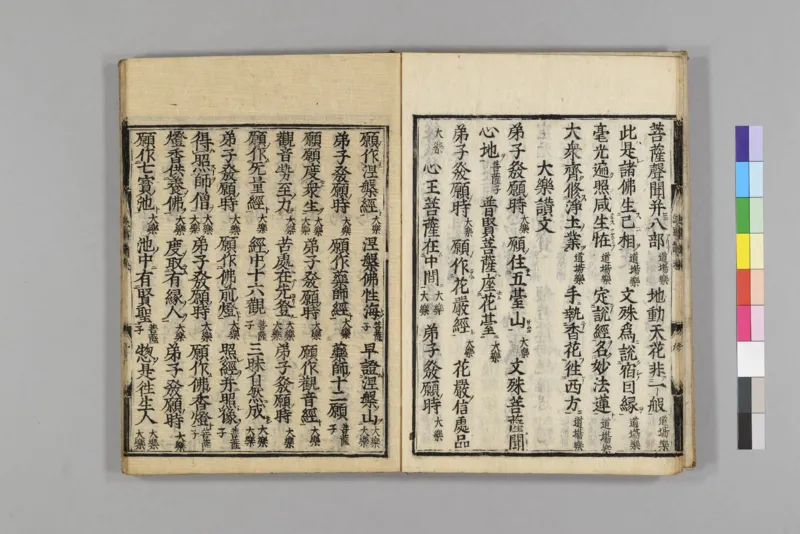 菩薩聲聞并八部 道場樂 地動天花非一般 道場樂
此是諸佛生已相 道場樂 文殊為說宿因緣 道場樂
毫光遍照咸生恠 道場樂 定說經名妙法蓮 道場樂
大衆齊修淨土業 道場樂 手執香花徃西方 道場樂
大樂讃文
弟子發願時 願住五臺山 大樂 文殊菩薩聞
心地 菩薩子 普賢菩薩座花臺 大樂
弟子發願時 大樂 願作花嚴經 大樂 花嚴信處品
大樂 心王菩薩在中間 大樂 弟子發願時 大樂
願作涅槃經 大樂 涅槃佛性海 菩薩子 早證涅槃山 大樂
弟子發願時 大樂 願作藥師經 大樂 藥師十二願 菩薩子
願願度衆生 大樂 弟子發願時 大樂 願作觀音經 大樂
觀音勢至力 大樂 苦處在先登 大樂 弟子發願時 大樂
願作無量經 大樂 經中十六觀 菩薩子 三昧自然成 大樂
弟子發願時 大樂 願作佛前燈 大樂 照經并照像 菩薩子
得照師僧 大樂 弟子發願時 大樂 願作佛香燈 菩薩子
燈香供養佛 大樂 度取有緣人 大樂 弟子發願時 大樂
願作七寶池 大樂 池中有賢聖 菩薩子 惣是徃生人 大樂